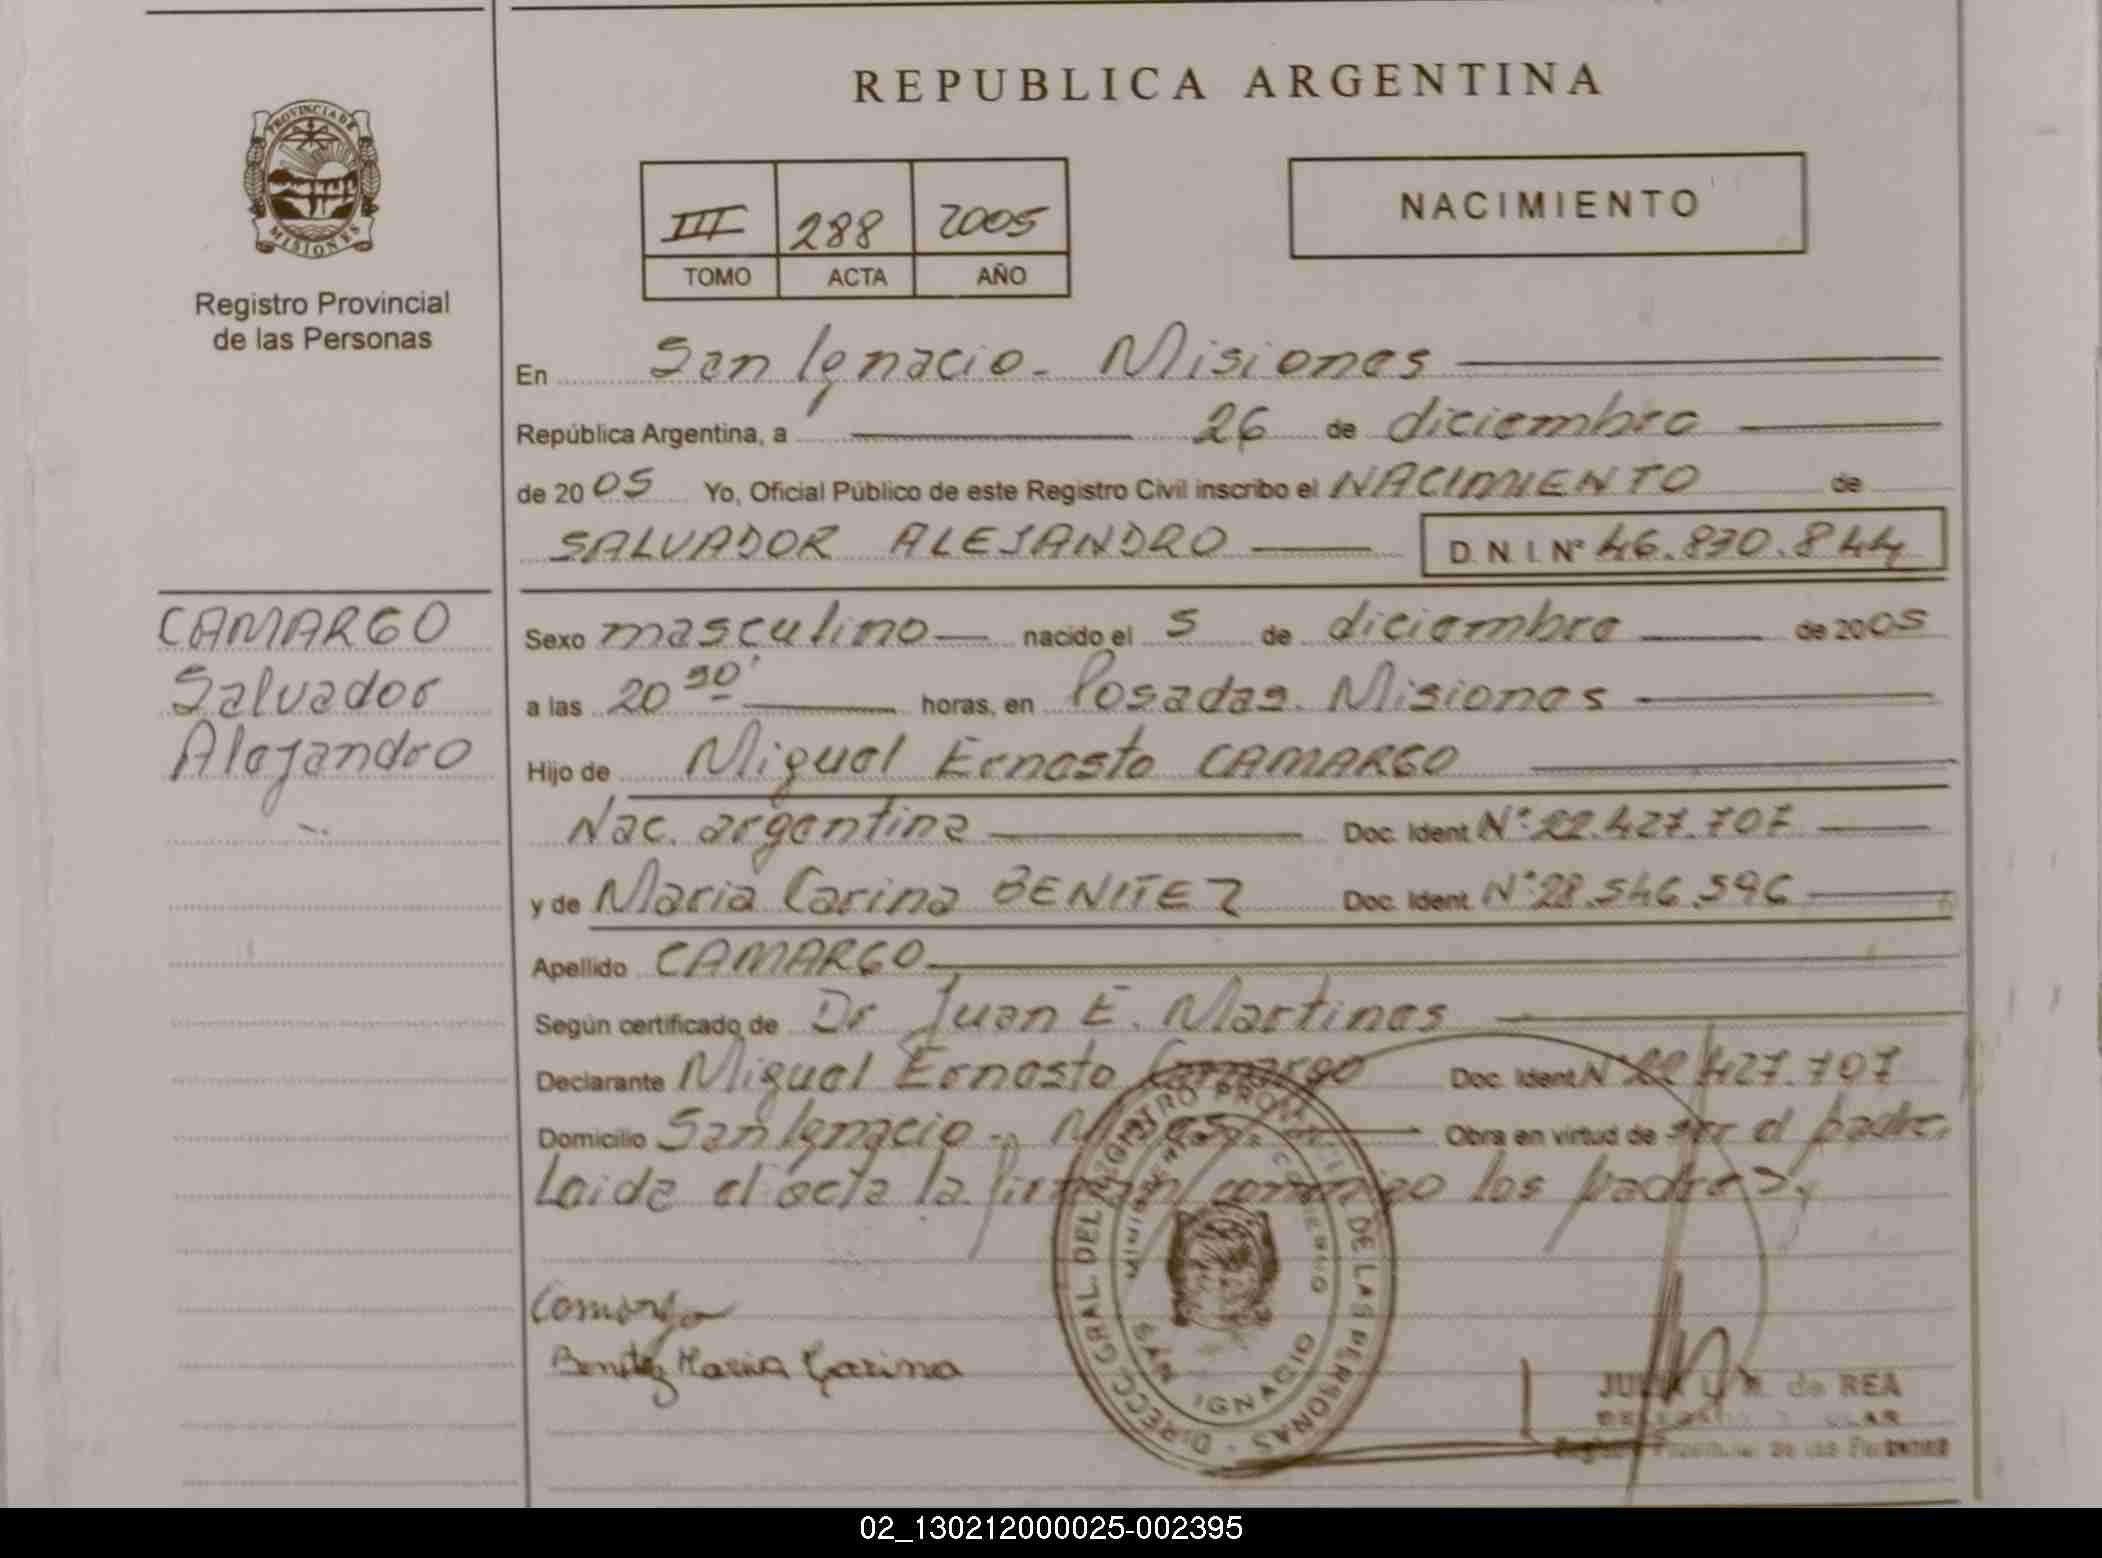 REPUBLICA ARGENTINA
PROVINCIA DE
MISIONES
Registro Provincial
de las Personas
III 288 2005
TOMO ACTA AÑO
NACIMIENTO
En San Ignacio - Misiones
República Argentina, a 26 de diciembre
de 2005 Yo, Oficial Público de este Registro Civil inscribo el NACIMIENTO de
SALVADOR ALEJANDRO D.N.I. Nº 46.870.844
CAMARGO
Salvador
Alejandro
Sexo masculino nacido el 5 de diciembre de 2005
a las 20 horas, en Posadas. Misiones
Hijo de Miguel Ernesto CAMARGO
Nac. argentina Doc. Ident. Nº 22.427.707
y de Maria Carina BENITEZ Doc. Ident. Nº 28.546.596
Apellido CAMARGO
Según certificado de Dr Juan E. Martines
Declarante Miguel Ernesto Camargo Doc. Ident. Nº 22.427.707
Domicilio San Ignacio - Obra en virtud de ser el padre.
Leida el acta la firman conmigo los padres
Camargo
Benitez Maria Carina
DIRECC. GRAL. DEL REGISTRO PROVINCIAL DE LAS PERSONAS
MINISTERIO GOBIERNO
SAN IGNACIO
de REA
02_130212000025-002395